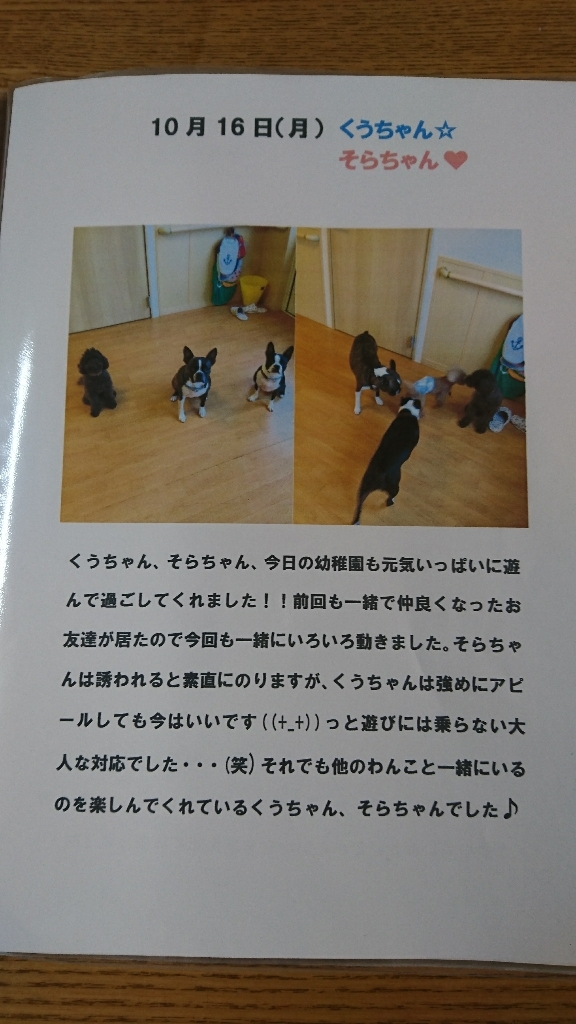 10月16日(月) くうちゃん☆
そらちゃん♥
くうちゃん、そらちゃん、今日の幼稚園も元気いっぱいに遊
んで過ごしてくれました！！前回も一緒で仲良くなったお
友達が居たので今回も一緒にいろいろ動きました。そらちゃ
んは誘われると素直にのりますが、くうちゃんは強めにアピ
ールしても今はいいです((+_+))っと遊びには乗らない大
人な対応でした・・・(笑)それでも他のわんこと一緒にいる
のを楽しんでくれているくうちゃん、そらちゃんでした♪